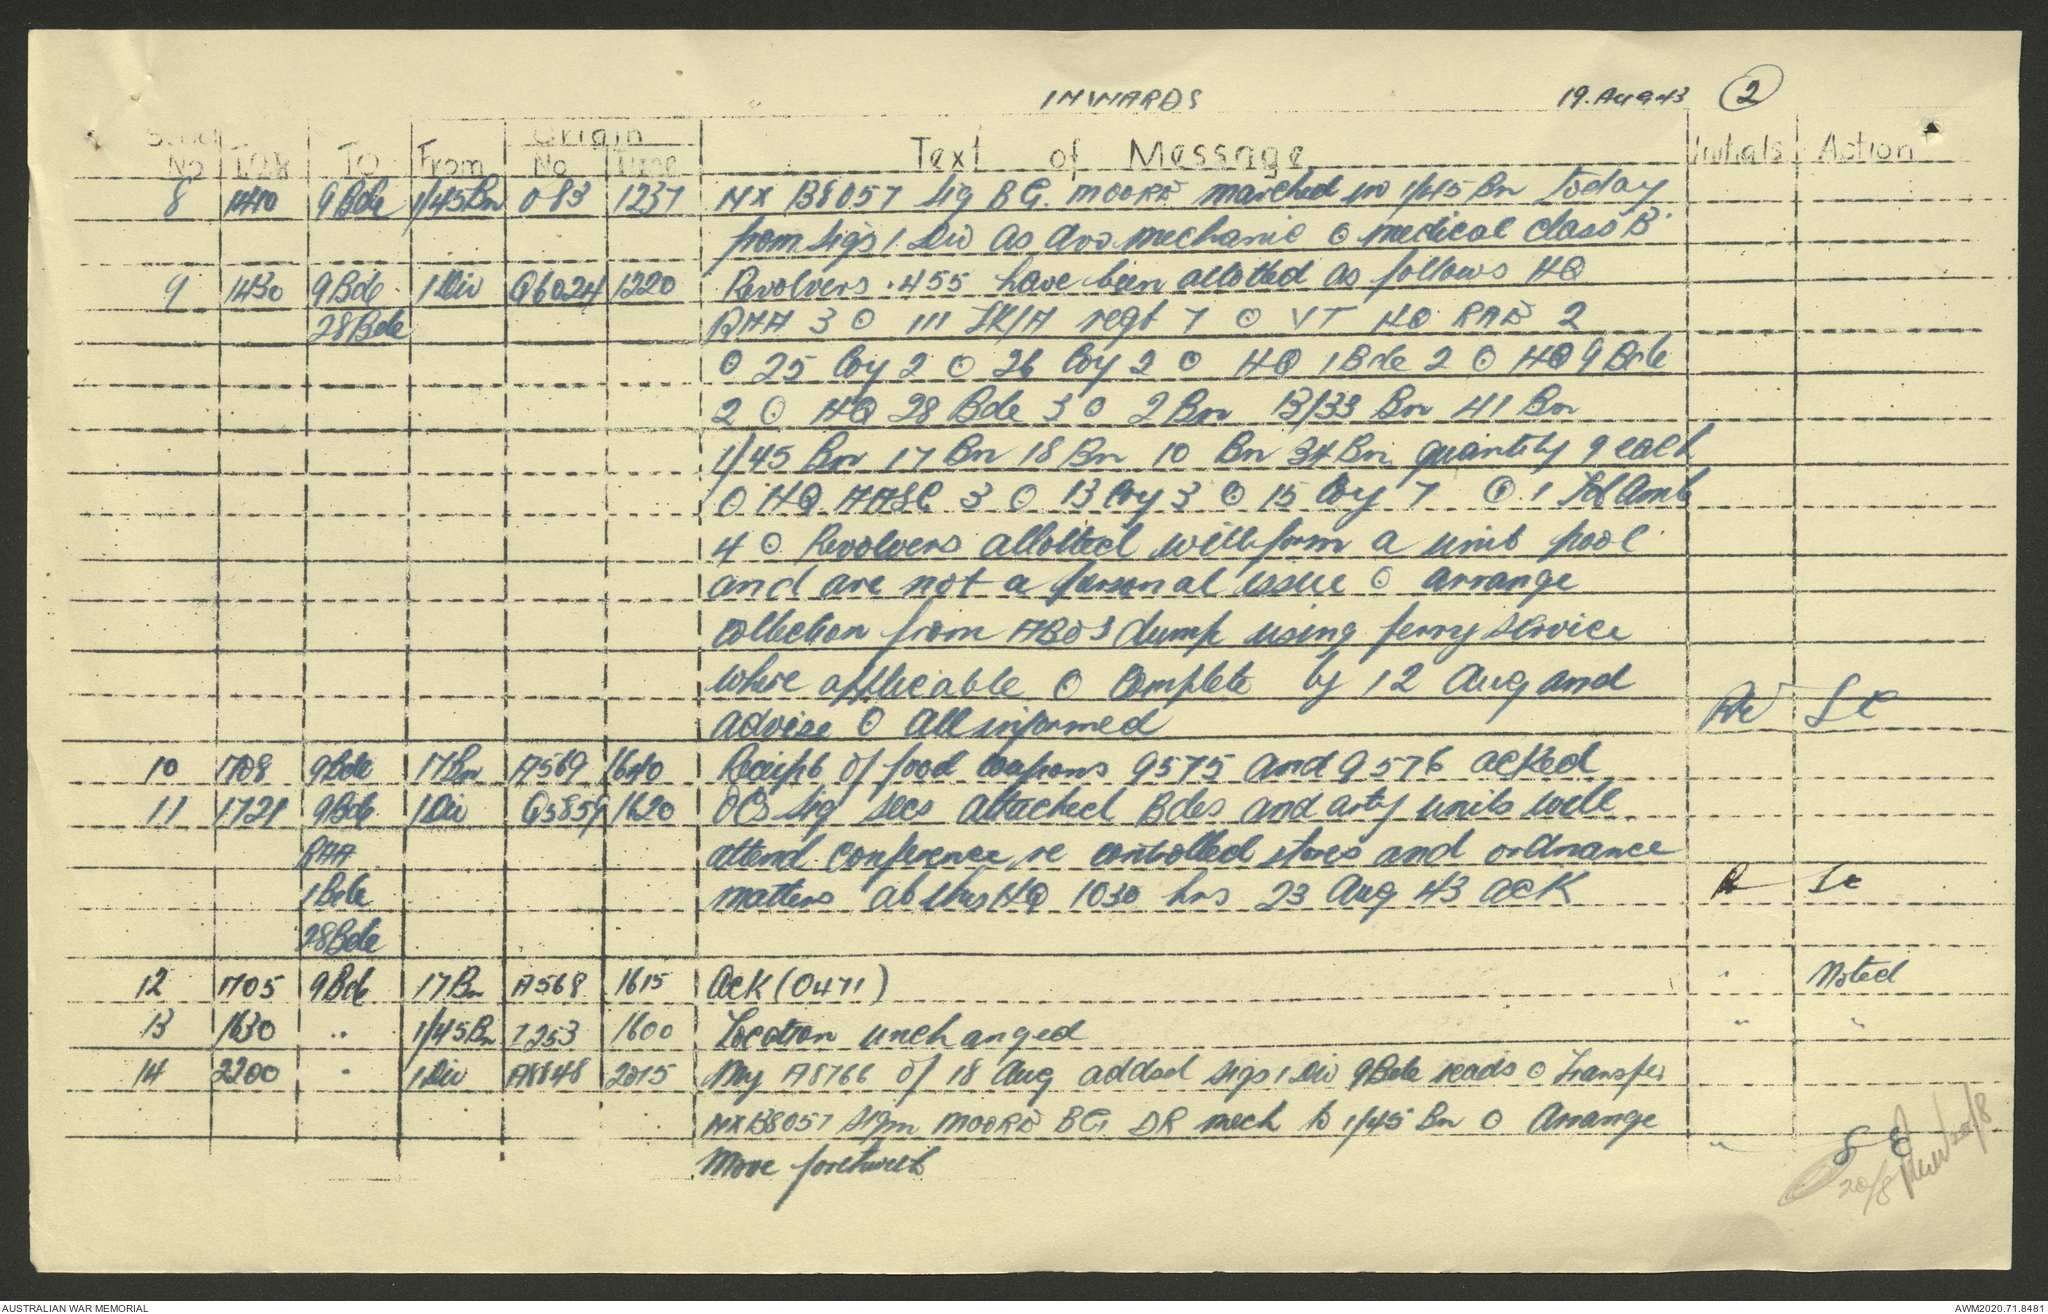 INWARDS 19. Aug 43 2
Serial Origin
No TOR TO From No. Time Text of Message Initials Action
8 1410 9 Bde 1/45 Bn 083 1237 NX B8057 Sig B G. MOORE marched in 1/45 Bn today
from Sigs 1 Div as mechanic ⊙ medical class B
9 1430 9 Bde 1 Div Q6024 1220 Revolvers .455 have been allotted as follows HQ
28 Bde RAA 3 ⊙ 111 regt 7 ⊙ HQ RAE 2
⊙ 25 Coy 2 ⊙ 26 Coy 2 ⊙ HQ 1 Bde 2 ⊙ HQ 9 Bde
2 ⊙ HQ 28 Bde 3 ⊙ 2 Bn 13/33 Bn 41 Bn
1/45 Bn 17 Bn 18 Bn 10 Bn 34 Bn quantity 9 each
⊙ HQ AASC 3 ⊙ 13 Coy 3 ⊙ 15 Coy 7 ⊙ 1 Fd Amb
4 ⊙ Revolvers allotted will form a unit pool
and are not a personal issue ⊙ arrange
collection from dump using ferry service
where applicable ⊙ Complete by 12 Aug and
advise ⊙ All informed SC
10 1708 9 Bde 17 Bn A569 1640 Receipt of food coupons 9575 and 9576 acked
11 1721 9 Bde 1 Div G5859 1620 OCs Sig secs attached Bdes and arty units will
RAA attend conference, re controlled stores and ordnance
1 Bde matters at this HQ 1030 hrs 23 Aug 43 ack SC
28 Bde
12 1705 9 Bde 17 Bn A568 1615 Ack (0471) " Noted
13 1630 " 1/45 Bn I253 1600 Location unchanged " "
14 2200 " 1 Div A8848 2015 My A8766 of 18 Aug addsd Sigs 1 Div 9 Bde reads ⊙ Transfer
NX B8057 Sigm MOORE BG. DR mech to 1/45 Bn ⊙ Arrange
Move forthwith "
20/8 20/8
AUSTRALIAN WAR MEMORIAL AWM2020.71.8481